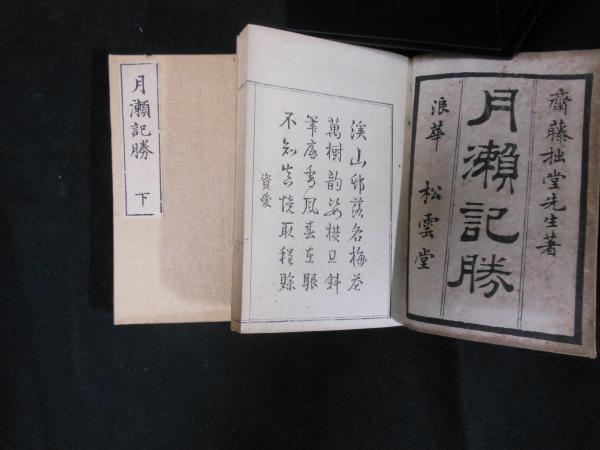 齋藤拙堂先生著
月瀨記勝
浪華 松雲堂
溪山邨落名梅花
萬樹韵姿横且斜
筆底香風春在眼
不知真境取程賒
資愛
月瀨記勝 下